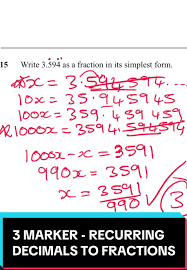 15 Write 3.594 as a fraction in its simplest form.
x = 3.594594...
10x = 35.945945
100x = 359.459459
1000x = 3594.594594
1000x - x = 3591
990x = 3591
x = 3591
990
3
3 MARKER - RECURRING
DECIMALS TO FRACTIONS